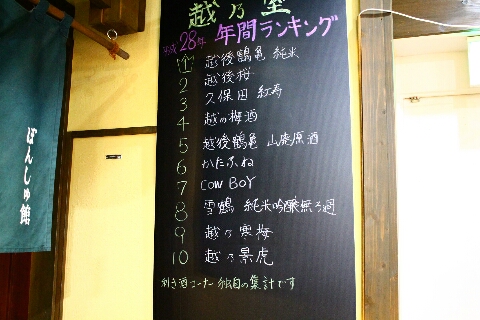 越乃室
平成28年 年間ランキング
1 越後鶴亀 純米
2 越後桜
3 久保田 紅寿
4 越の梅酒
5 越後鶴亀 山廃原酒
6 かたふね
7 COW BOY
8 雪鶴 純米吟醸無ろ過
9 越乃寒梅
10 越乃景虎
利き酒コーナー独自の集計です
ぽんしゅ館